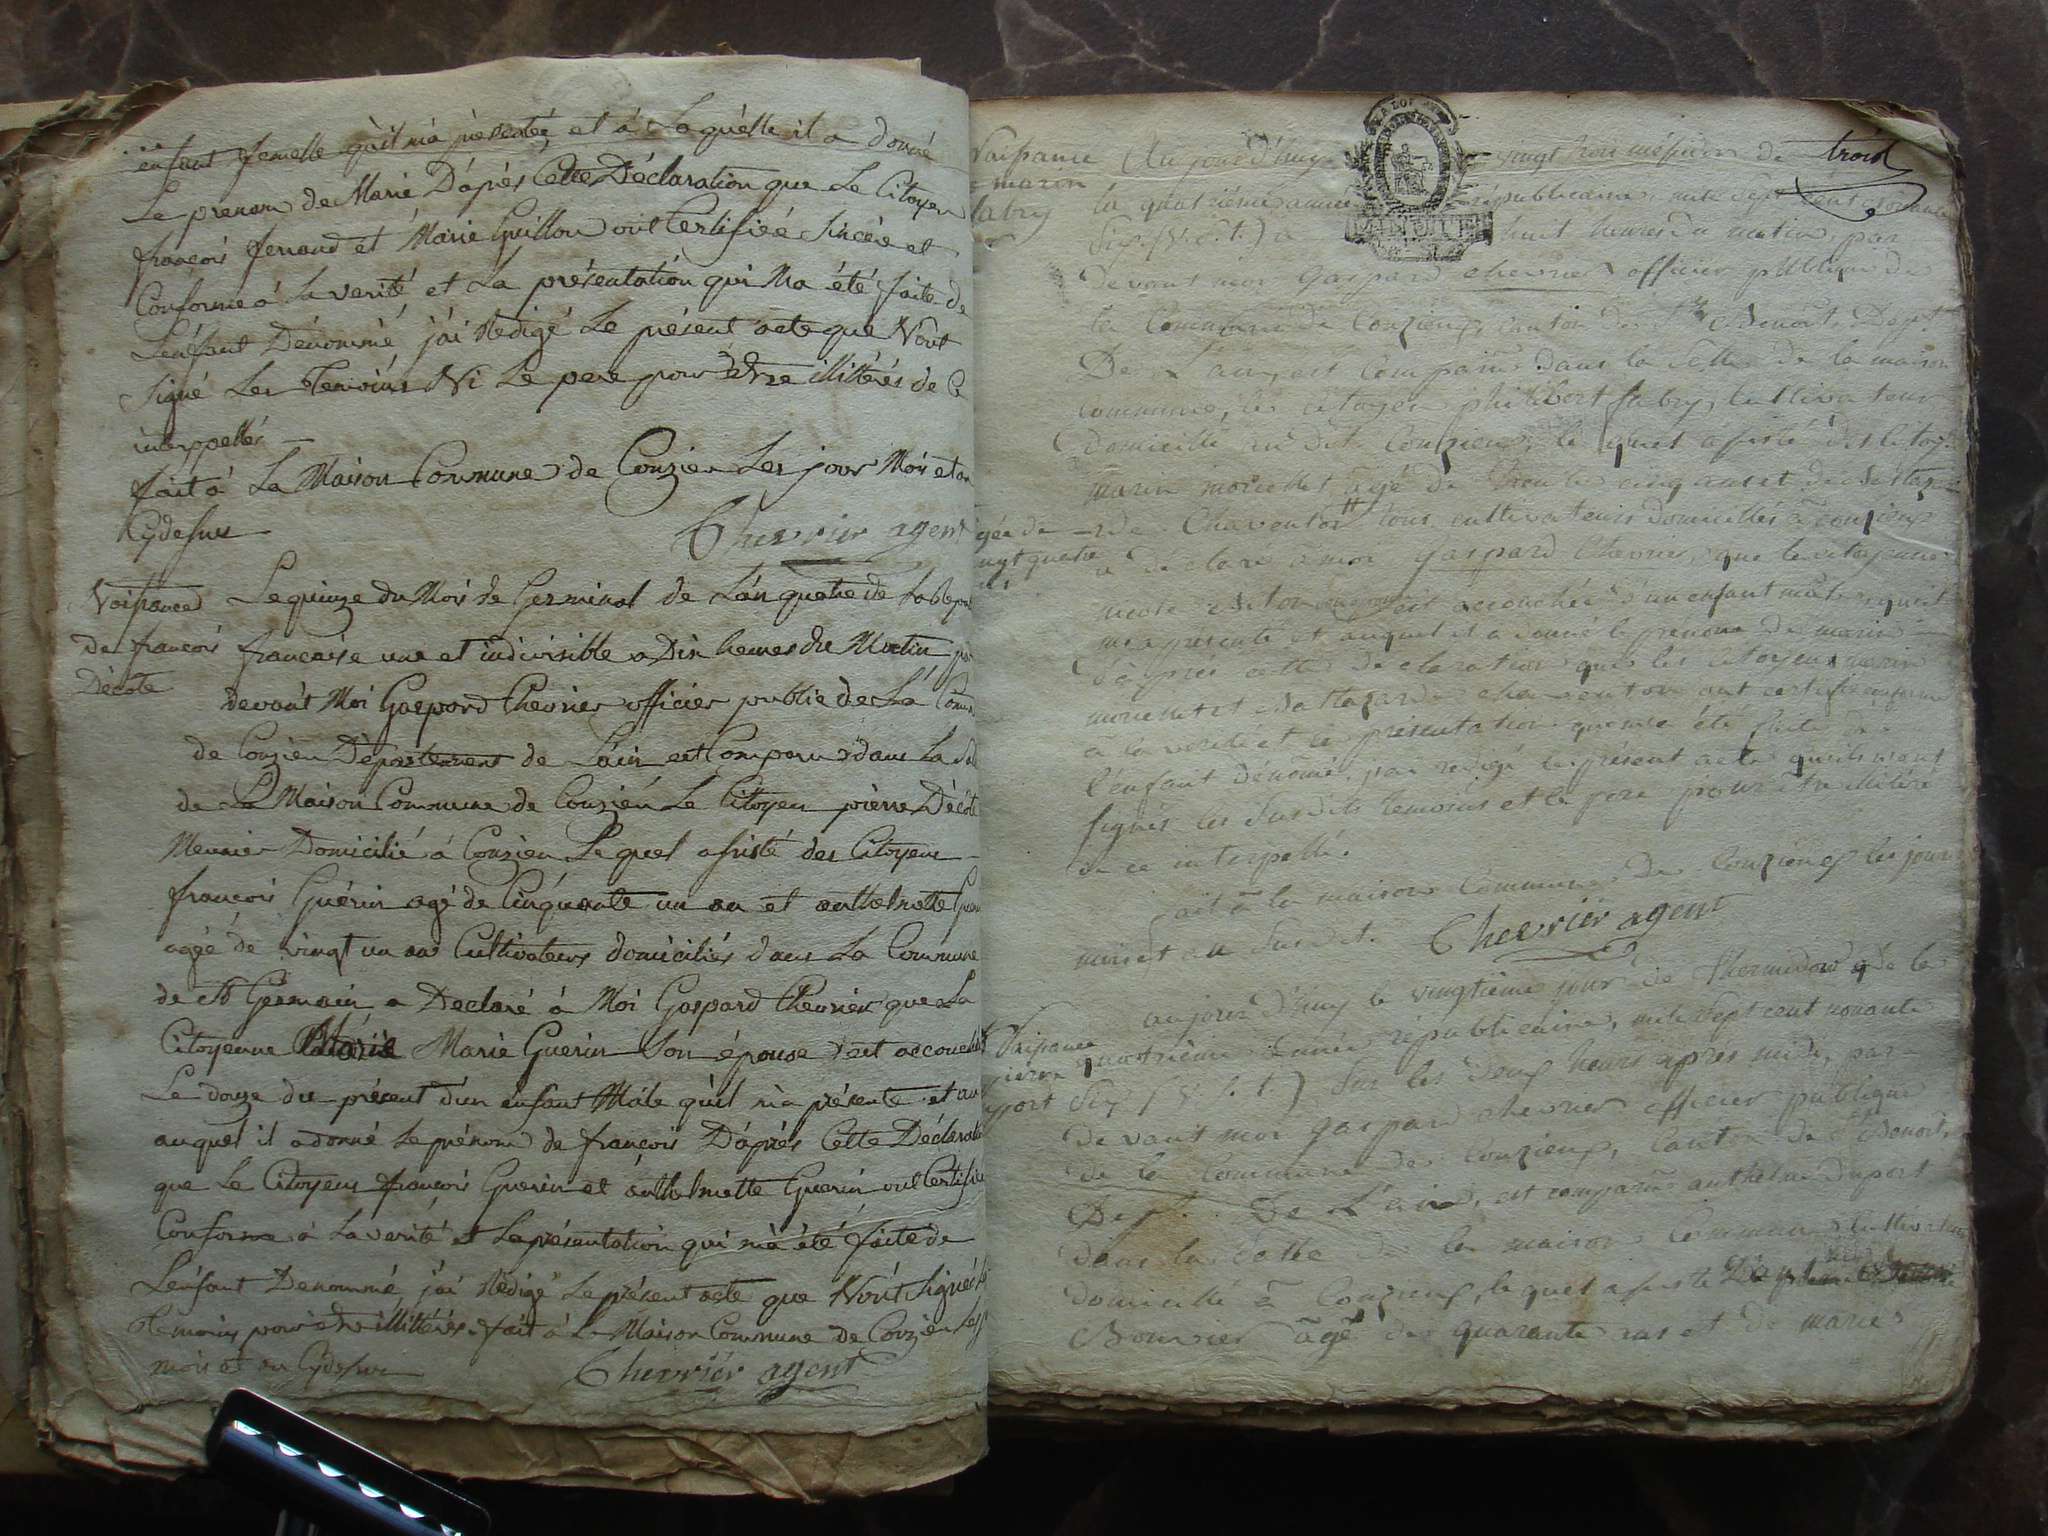 enfant femelle qu'il m'a présentée et à Laquelle il a donné
Le prenom de Marie D'après Cette Déclaration que Le Citoyen
françois ferrand et Marie Guillon ont Certifiée Sincère et
Conforme à La verité et La présentation qui M'a été faite de
L'enfant Dénommé j'ai Rédigé Le présent acte que N'ont
signé Les Temoins Ni Le pere pour Etre illitérés de Ce
interppellés
fait à La Maison Commune de Conzieu Les jour Mois et an
Cydesus
Chevrier agent
Naissance
de françois
Décote
Le quinze du Mois de Germinal de L'an quatre de La Repub
francaise une et indivisible a Dix heures du Matin par
devant Moi Gaspard Chevrier officier public de La Commu
de Conzieu Département de L'ain est Comparu dans La Sal
de La Maison Commune de Conzieu Le Citoyen pierre Décote
Meunier Domicilié à Conzieu Lequel assisté des Citoyens
françois Guérin agé de Cinquante un an et anthelmette Guer
agée de vingt un an Cultivateurs domiciliés dans La Commune
de St Germain a Declaré à Moi Gaspard Chevrier que La
Citoyenne Marie Guerin Son épouse est accouché
Le douze du présent d'un enfant Mâle qu'il m'a présenté et au
auquel il a donné Le prénom de françois D'après Cette Déclarat
que Le Citoyens françois Guerin et anthelmette Guerin ont Certifié
Conforme à La verité et La présentation qui m'a été faite de
L'enfant Denommé j'ai Rédigé Le présent acte que N'ont Signé
Temoins pour etre illittérés. fait à La Maison Commune de Conzieu Les j
mois et an Cydesus
Chevrier agent
trois
Naissance
marin
fabry
Au jourd'huy vingt trois messidor de
la quatrième année républicaine, mile sept cent nonante
Six, (v. s. t.) a huit heures du matin, par
devant moi gaspard chevrier officier publique de
la Commune de Conzieux, canton de St Benoit, Dept.
De L'ain, est Comparu dans la Salle de la maison
commune, le citoyen philibert fabry, cultivateur
domicilié au dit Conzieux, le quel assisté des Citoy.
marin morellet agé de trente cinq ans et de Baltaz
agée de
vingt quatre
ans
-rde Chaventon tous cultivateurs domiciliés à conzieux
a declaré à moi gaspard Chevrier, que la citoyenne
est accouchée d'un enfant mâle, qu'il
m'a présenté et auquel il a donné le prénom de marin
d'après cette declaration que les citoyens marin
morellet et Baltazarde chaventon ont certifié conforme
à la verité et la présentation qui m'a été faite de
l'enfant dénomé, j'ai redigé le présent acte qu'ils n'ont
signés les Susdits temoins et le pere pour être illitéré
de ce interpellé.
fait à la maison Commune de Conzieux les jours
mois et an Susdit. Chevrier agent
Naissance
pierre
duport
aujourd'huy le vingtième jour de thermidor de la
quatrième année républicaine, mile Sept cent nonante
Six, (v. s. t.) Sur les deux heures après midi, par-
devant moi gaspard chevrier officier publique
de la Commune de Conzieux, Canton de St Benoit,
Dept. De L'ain, est comparu anthelme Duport
dans la Salle de la maison Commune, Cultivateur
domicilié à Conzieux, le quel assisté
Bouvier âgé de quarante ans et de marie